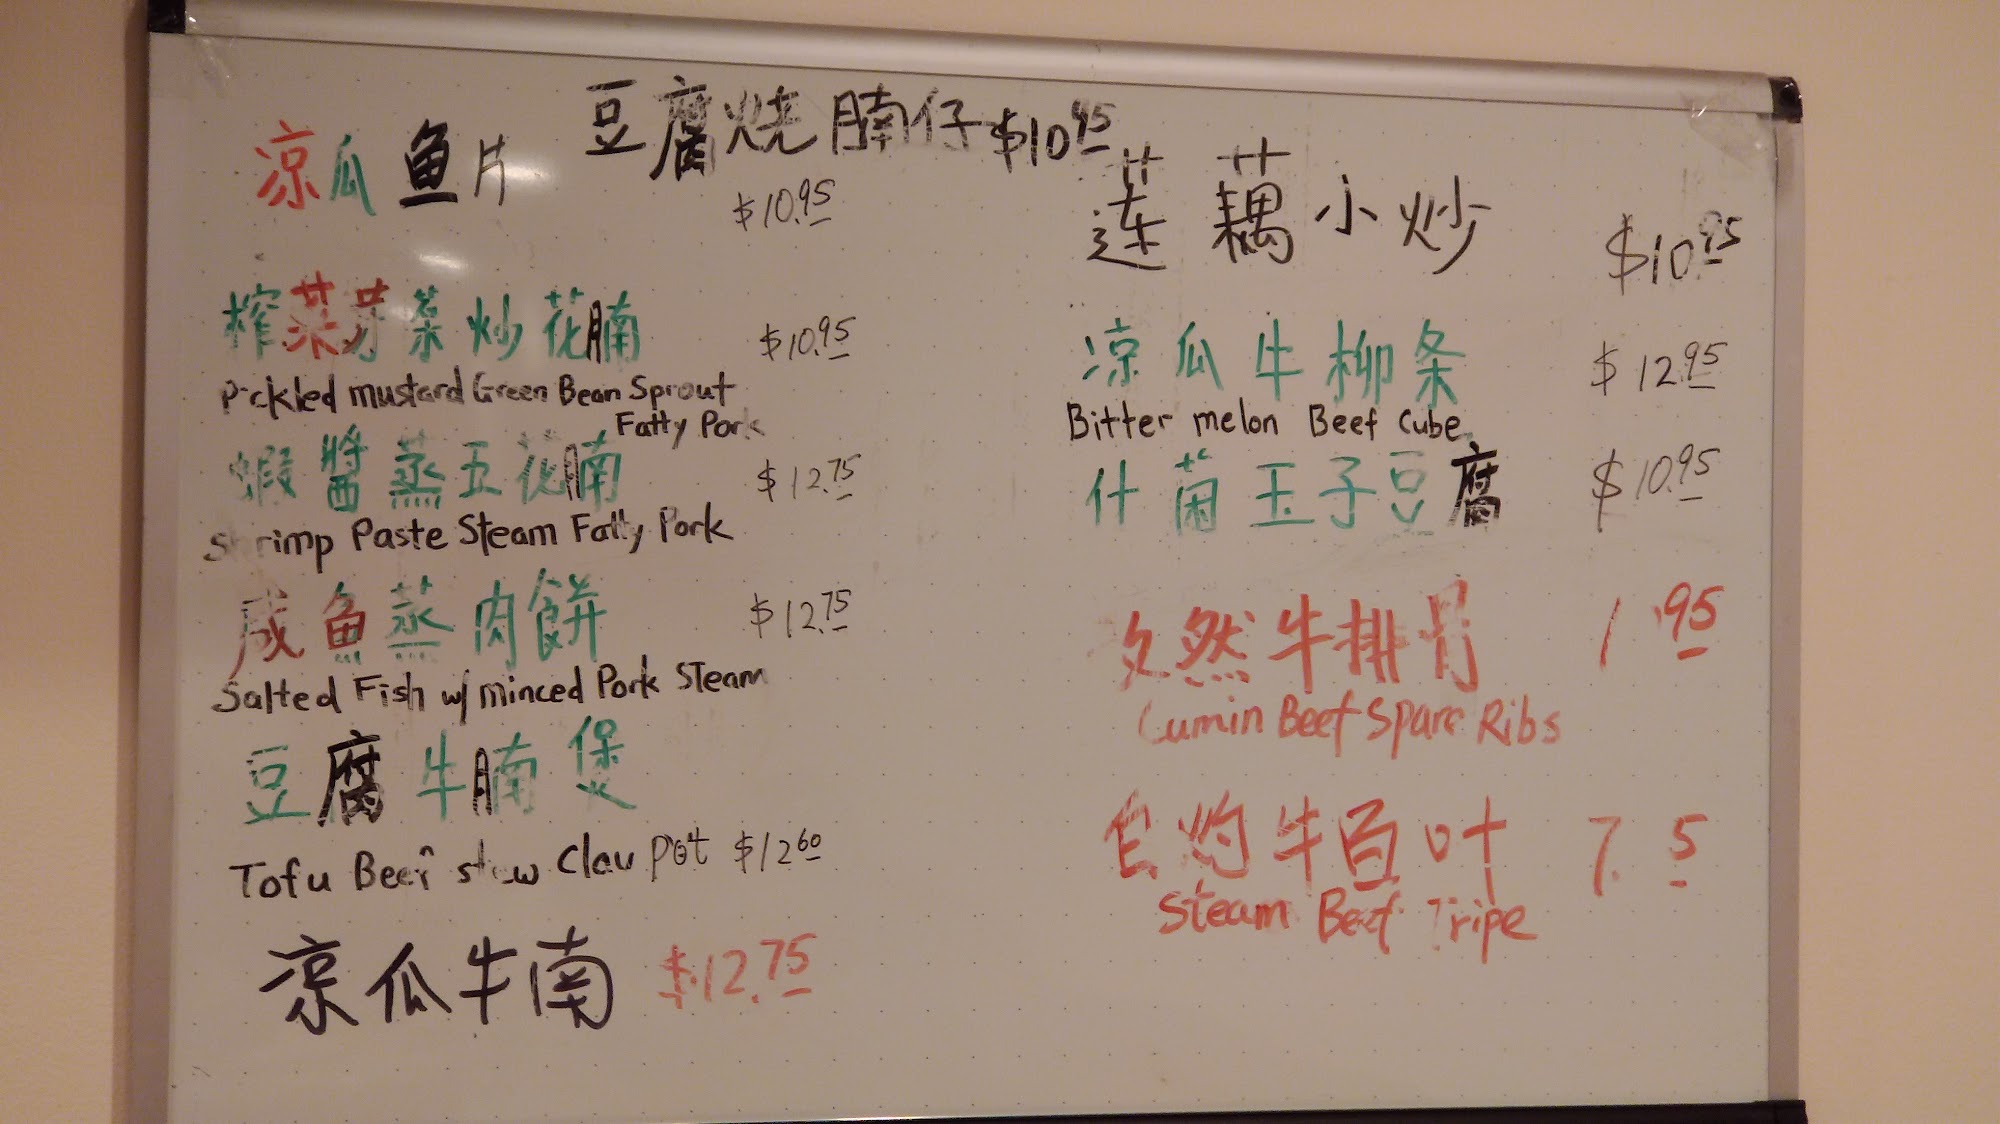 豆腐烧腩仔 $10.95
凉瓜鱼片 $10.95
榨菜芽菜炒花腩 $10.95
Pickled mustard Green Bean Sprout
Fatty Pork
蝦醬蒸五花腩 $12.75
Shrimp Paste Steam Fatty Pork
咸魚蒸肉餅 $12.75
Salted Fish w/ minced Pork Steam
豆腐牛腩煲
Tofu Beef stew Clau Pot $12.60
凉瓜牛南 $12.75
莲藕小炒 $10.95
凉瓜牛柳条 $12.95
Bitter melon Beef Cube
什菌玉子豆腐 $10.95
然牛排骨 1 .95
Cumin Beef Spare Ribs
灼牛百叶 7. 5
Steam Beef Tripe